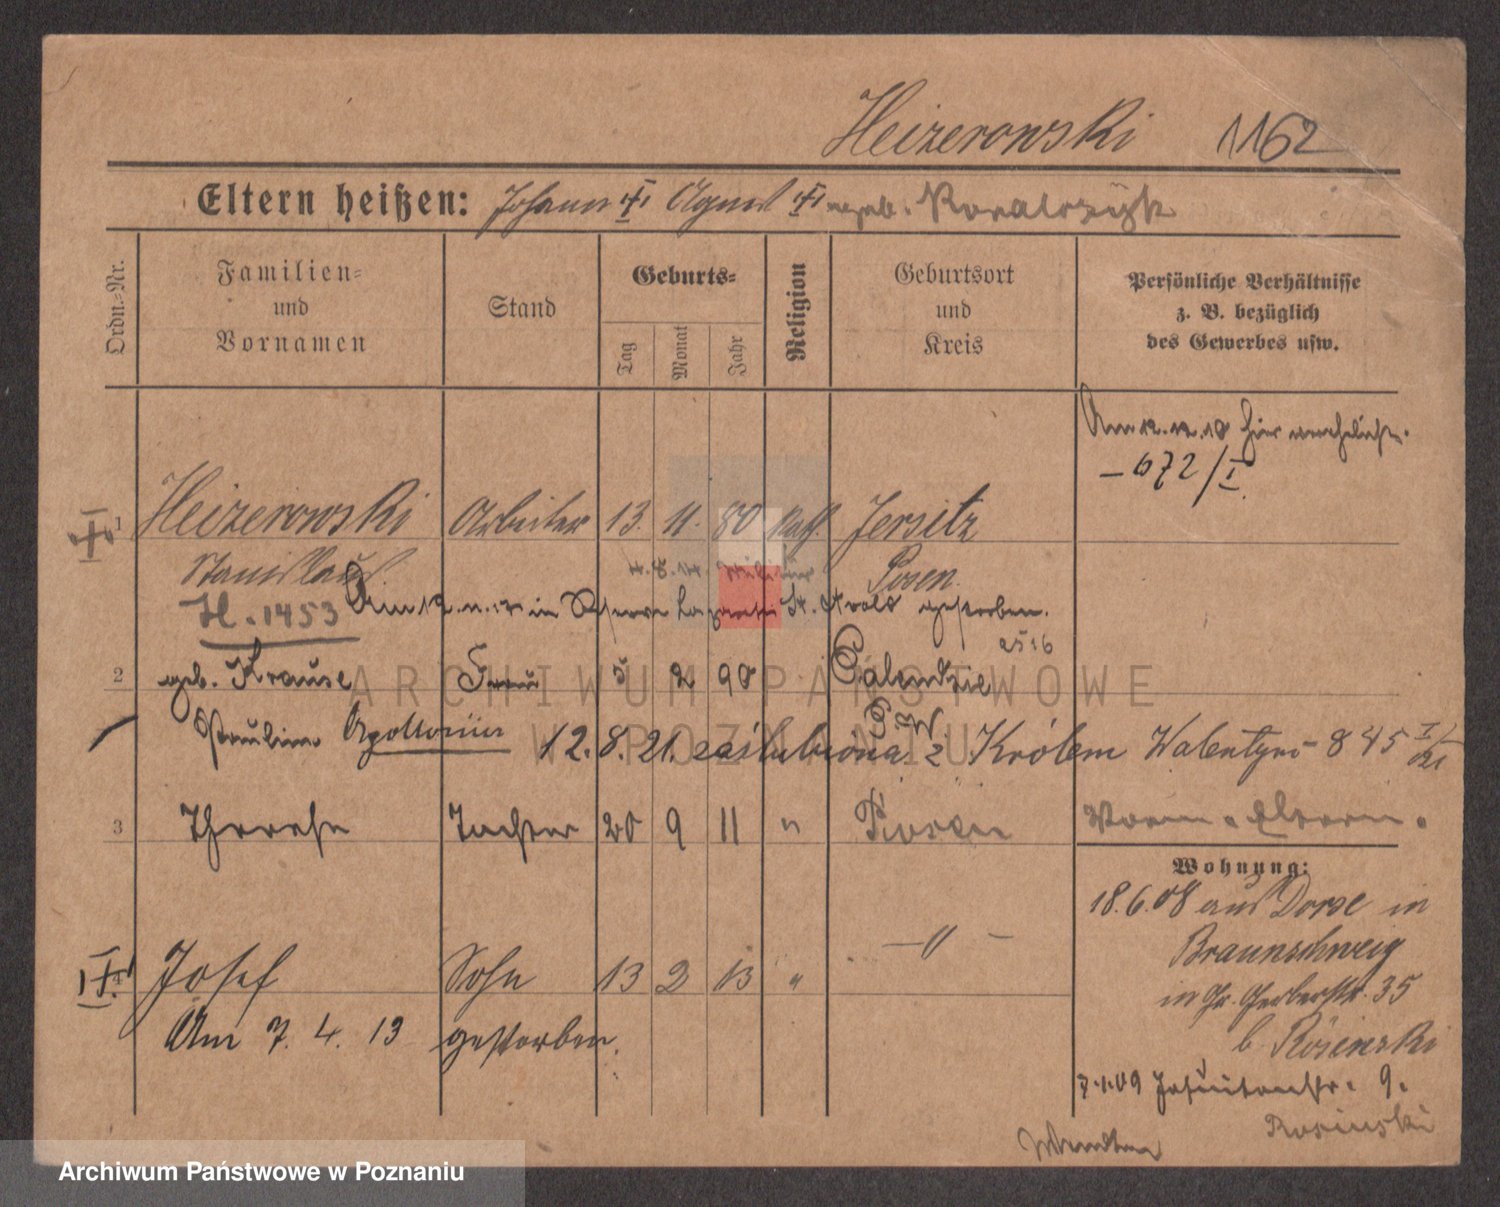 Heizerowski 1162
Eltern heißen: Johann Agnes geb. Kowalczyk
Ordn.-Nr.
Familien- und Vornamen
Stand
Geburts-
Tag Monat Jahr
Religion
Geburtsort und Kreis
Persönliche Verhältnisse z. B. bezüglich des Gewerbes usw.
Am 12.12.10 hier verehelicht.
- 672/I.
1 Heizerowski Arbeiter 13. 11. 80 kath. Jersitz
Stanislaus Posen.
H. 1453 Am 12. in Lazarett St. Avold gestorben.
2516
2 geb. Krause Frau 5 2 90 Palendzie
Pauline Apollonia P. W.
12. 8. 21. zaślubiona z Królem Walentym 845
3 Therese Tochter 20 9 11 " Posen
Wohnung:
18.6.08 aus Dorse in
Braunschweig
in Gr. Gerberstr. 35
b. Rósinski
7.1.09 Jesuitenstr. 9.
Rosinski
4 Josef Sohn 13 2 13 " - " -
Am 7. 4. 13 gestorben.
ARCHIWUM PAŃSTWOWE
W POZNANIU
Archiwum Państwowe w Poznaniu